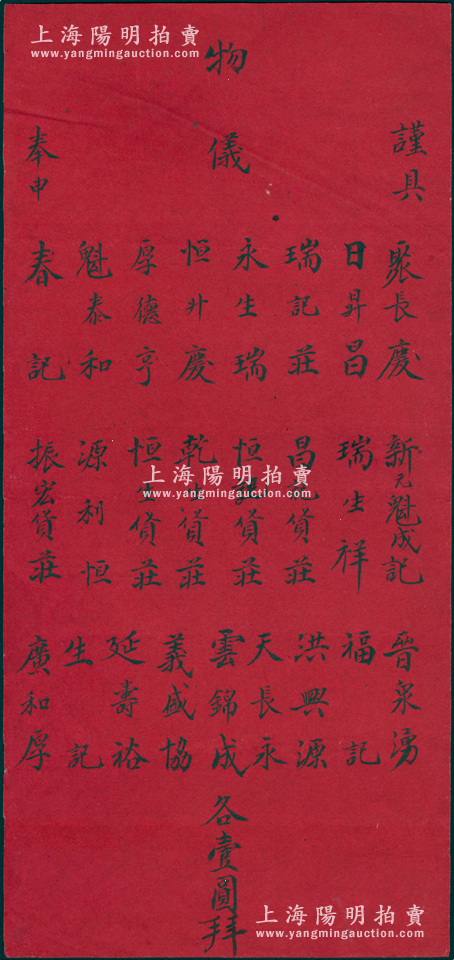 上海陽明拍賣
www.yangmingauction.com
謹具
物儀
奉申
聚長慶
日昇昌
瑞記莊
永生瑞
恒升慶
厚德亨
魁泰和
春記
新元魁成記
瑞生祥
昌
貨莊
恒
貨莊
乾
貨莊
恒生貨莊
源利恒
振宏貨莊
上海陽明拍賣
www.yangmingauction.com
晉泉湧
福記
洪興源
天長永
雲錦成
義盛協
延壽裕
生記
廣和厚
各壹圓拜
上海陽明拍賣
www.yangmingauction.com